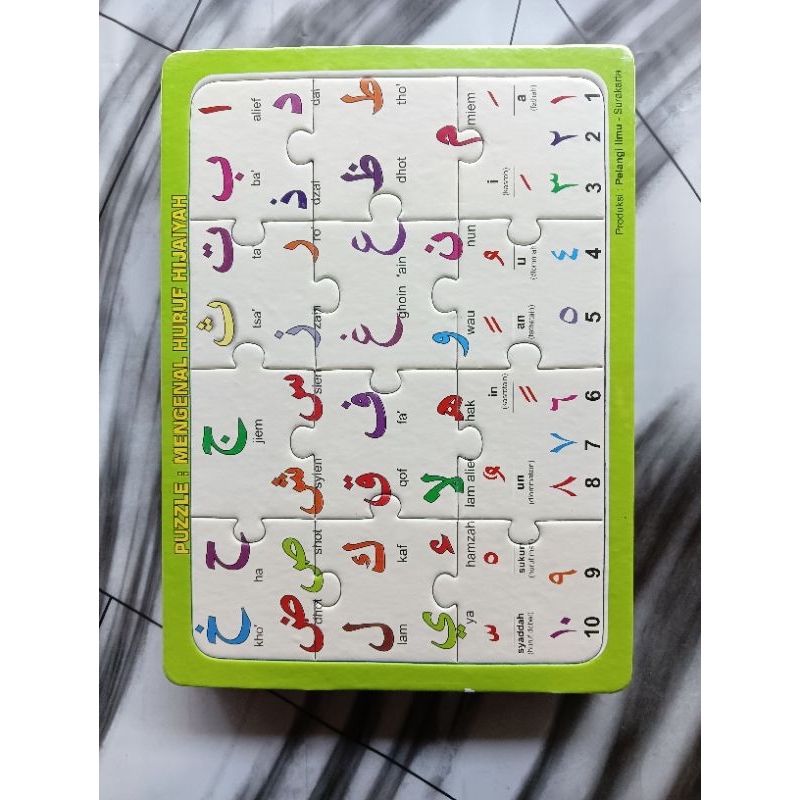 PUZZLE : MENGENAL HURUF HIJAIYAH
ا ب ت ث ج ح خ
kho' ha jiem tsa' ta ba' alief
د ذ ر ز س ش ص ض
dhot shot syien sien zain ro' dzal dal
ط ظ ع غ ف ق ك ل
lam kaf qof fa' ghoin 'ain dhot tho'
م ن و ه لا ء ي
ya hamzah lam alief hak wau nun miem
syaddah sukun un in an u i a
(huruf dobel) (huruf mati) (dlommatain) (kasrotain) (fathatain) (dlommah) (kasroh) (fathah)
١٠ ٩ ٨ ٧ ٦ ٥ ٤ ٣ ٢ ١
10 9 8 7 6 5 4 3 2 1
Produksi : Pelangi Ilmu - Surakarta